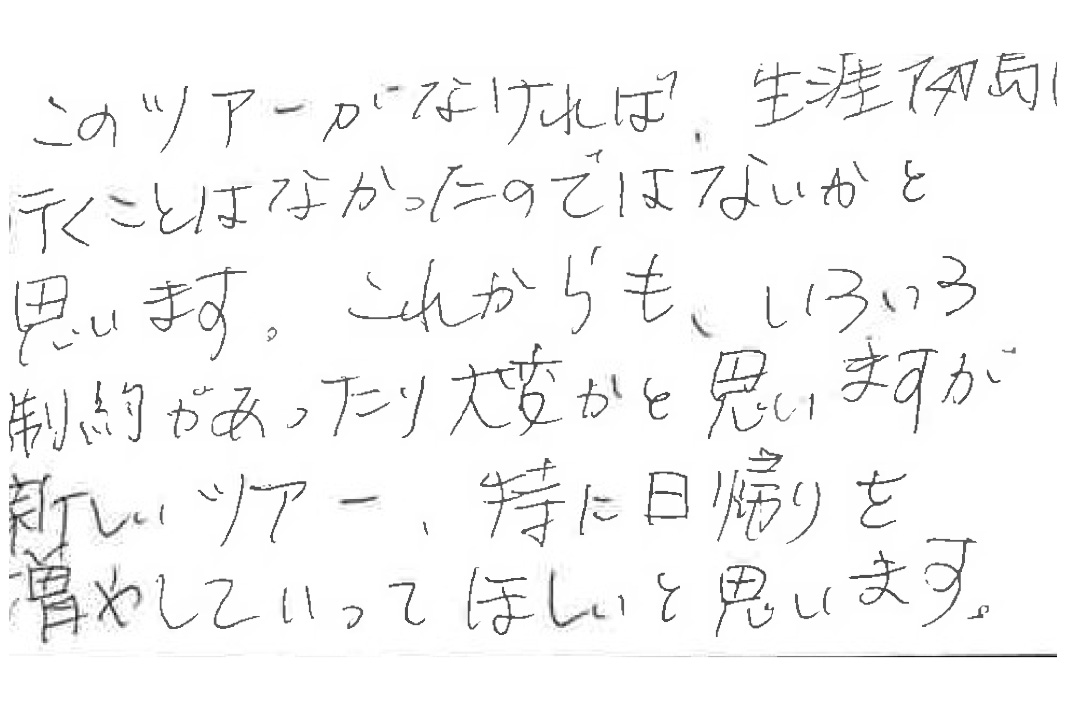 このツアーがなければ、生涯島に
行くことはなかったのではないかと
思います。これからも、いろいろ
制約があったり大変かと思いますが
新しいツアー、特に日帰りを
増やしていってほしいと思います。